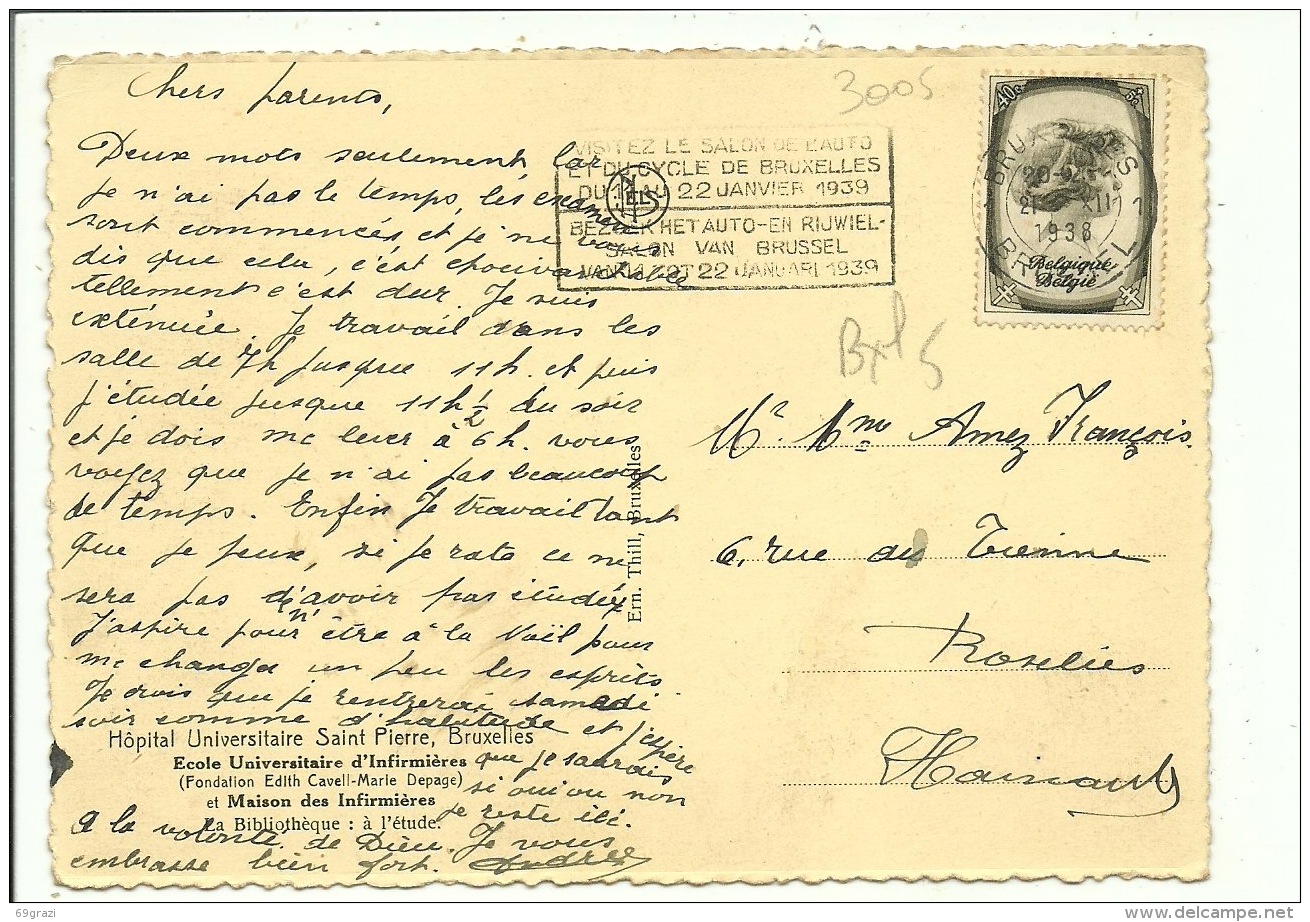 Chers parents,
Deux mots seulement, car
je n'ai pas le temps, les examens
sont commencés, et je ne vous
dis que cela, c'est
tellement c'est dur. Je suis
exténuée. Je travail dans les
salle de 7h jusque 11h. et puis
j'étudée jusque 11h 1/2 du soir
et je dois me lever à 6h. vous
voyez que je n'ai pas beaucoup
de temps. Enfin Je travail tant
que je peux, si je rate ce ne
sera pas d'avoir pas étudéy
n'
J'aspire pour être à la Noël pour
me changer un peu les esprits
Je crois que je rentrerai samedi
soir comme d'habitude et j'espère
que je saurais
si oui ou non
je reste ici.
A la volonté de Dieu. Je vous
embrasse bien fort. Andrée
Hôpital Universitaire Saint Pierre, Bruxelles
Ecole Universitaire d'Infirmières
(Fondation Edith Cavell-Marie Depage)
et Maison des Infirmières
La Bibliothèque : à l'étude.
Ern. Thill, Bruxelles
NELS
3005
VISITEZ LE SALON DE L'AUTO
ET DU CYCLE DE BRUXELLES
DU 11 AU 22 JANVIER 1939
BEZOEK HET AUTO-EN RIJWIEL-
SALON VAN BRUSSEL
VAN 11 TOT 22 JANUARI 1939
40c 5c
BRUXELLES
21 XII
1938
1 1
BRUSSEL
Belgique
België
Bxl 5
Mr Mme Amez François.
6, rue du Tienne
Roselies
Hainaut
69grazi
delcampe.net